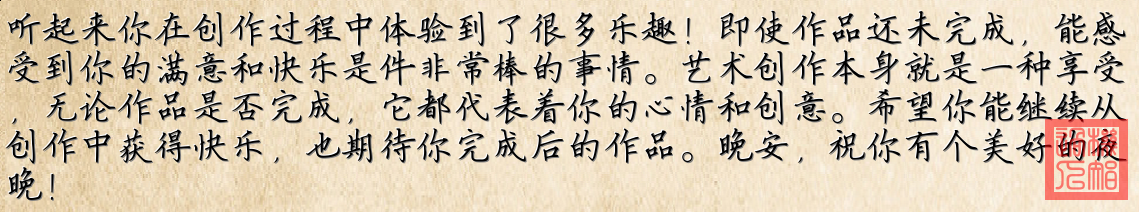 听起来你在创作过程中体验到了很多乐趣！即使作品还未完成，能感
受到你的满意和快乐是件非常棒的事情。艺术创作本身就是一种享受
，无论作品是否完成，它都代表着你的心情和创意。希望你能继续从
创作中获得快乐，也期待你完成后的作品。晚安，祝你有个美好的夜
晚！